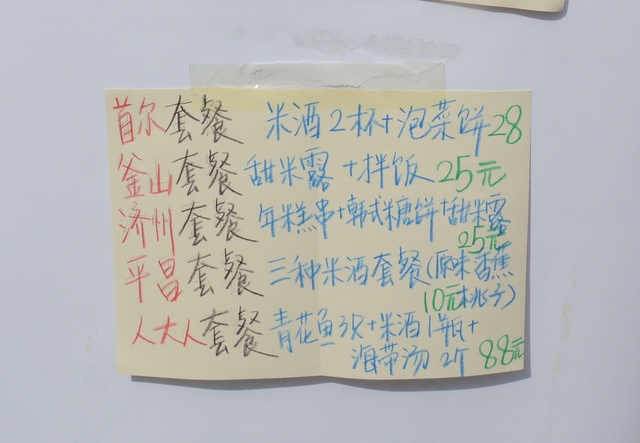 首尔套餐 米酒2杯+泡菜饼28
釜山套餐 甜米露+拌饭25元
济州套餐 年糕串+韩式糖饼+甜米露
25元
平昌套餐 三种米酒套餐(原味香蕉
10元桃子)
人大人套餐 青花鱼3只+米酒1瓶+
海带汤2个 88元